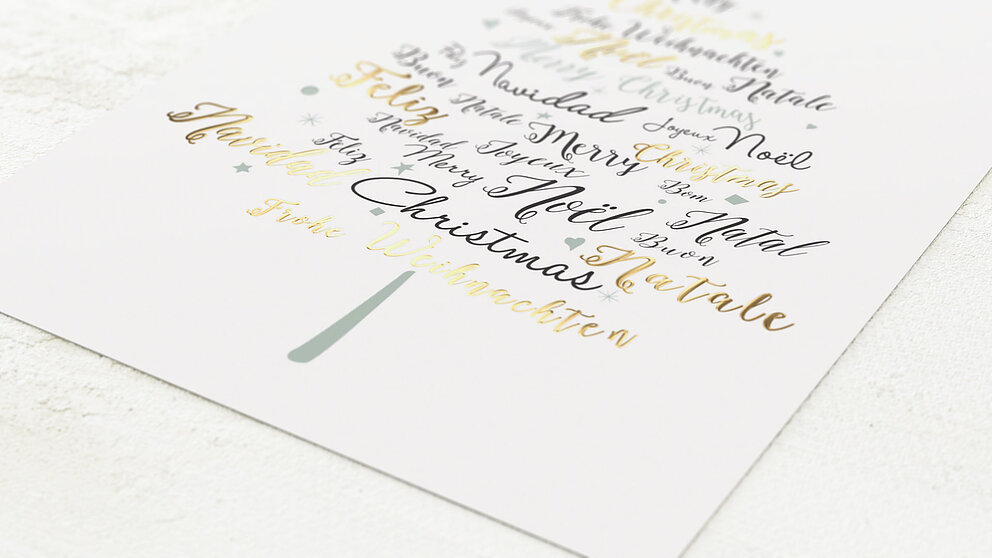 Christmas
Frohe Weihnachten
Noël Buon Natale
Merry Christmas
Feliz Navidad Joyeux Noël
Buon Natale Merry Christmas
Feliz Navidad Joyeux Noël Bom Natal
Navidad Feliz Merry Christmas Buon Natale
Frohe Weihnachten